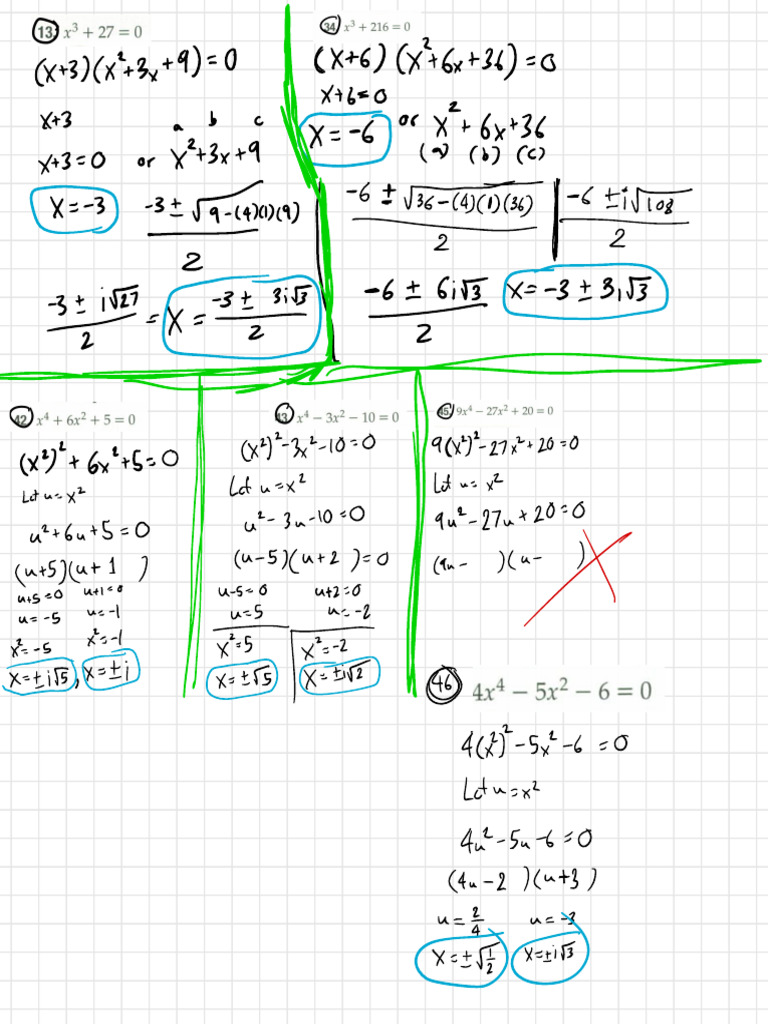 13. x³ + 27 = 0
(x+3)(x²+3x+9)=0
x+3
a b c
x+3=0 or x²+3x+9
x=-3
(-3 ± √(9-(4)(1)(9)))/2
(-3 ± i√27)/2 = x = (-3 ± 3i√3)/2
34. x³ + 216 = 0
(x+6)(x²+6x+36)=0
x+6=0
x=-6 or x²+6x+36
(a) (b) (c)
(-6 ± √(36-(4)(1)(36)))/2 | (-6 ± i√108)/2
(-6 ± 6i√3)/2 x=-3 ± 3i√3
42. x⁴ + 6x² + 5 = 0
(x²)²+6x²+5=0
Let u=x²
u²+6u+5=0
(u+5)(u+1 )
u+5=0 u+1=0
u=-5 u=-1
x²=-5 x²=-1
x=±i√5, x=±i
43. x⁴ − 3x² − 10 = 0
(x²)²-3x²-10=0
Let u=x²
u²-3u-10=0
(u-5)(u+2 )=0
u-5=0 u+2=0
u=5 u=-2
x²=5 x²=-2
x=±√5 x=±i√2
45. 9x⁴ − 27x² + 20 = 0
9(x²)²-27x²+20=0
Let u=x²
9u²-27u+20=0
(9u- )(u- )
46 4x⁴ − 5x² − 6 = 0
4(x²)²-5x²-6 =0
Let u=x²
4u²-5u-6=0
(4u-2 )(u+3 )
u=2/4 u=-3
x=±√(1/2) x=±i√3